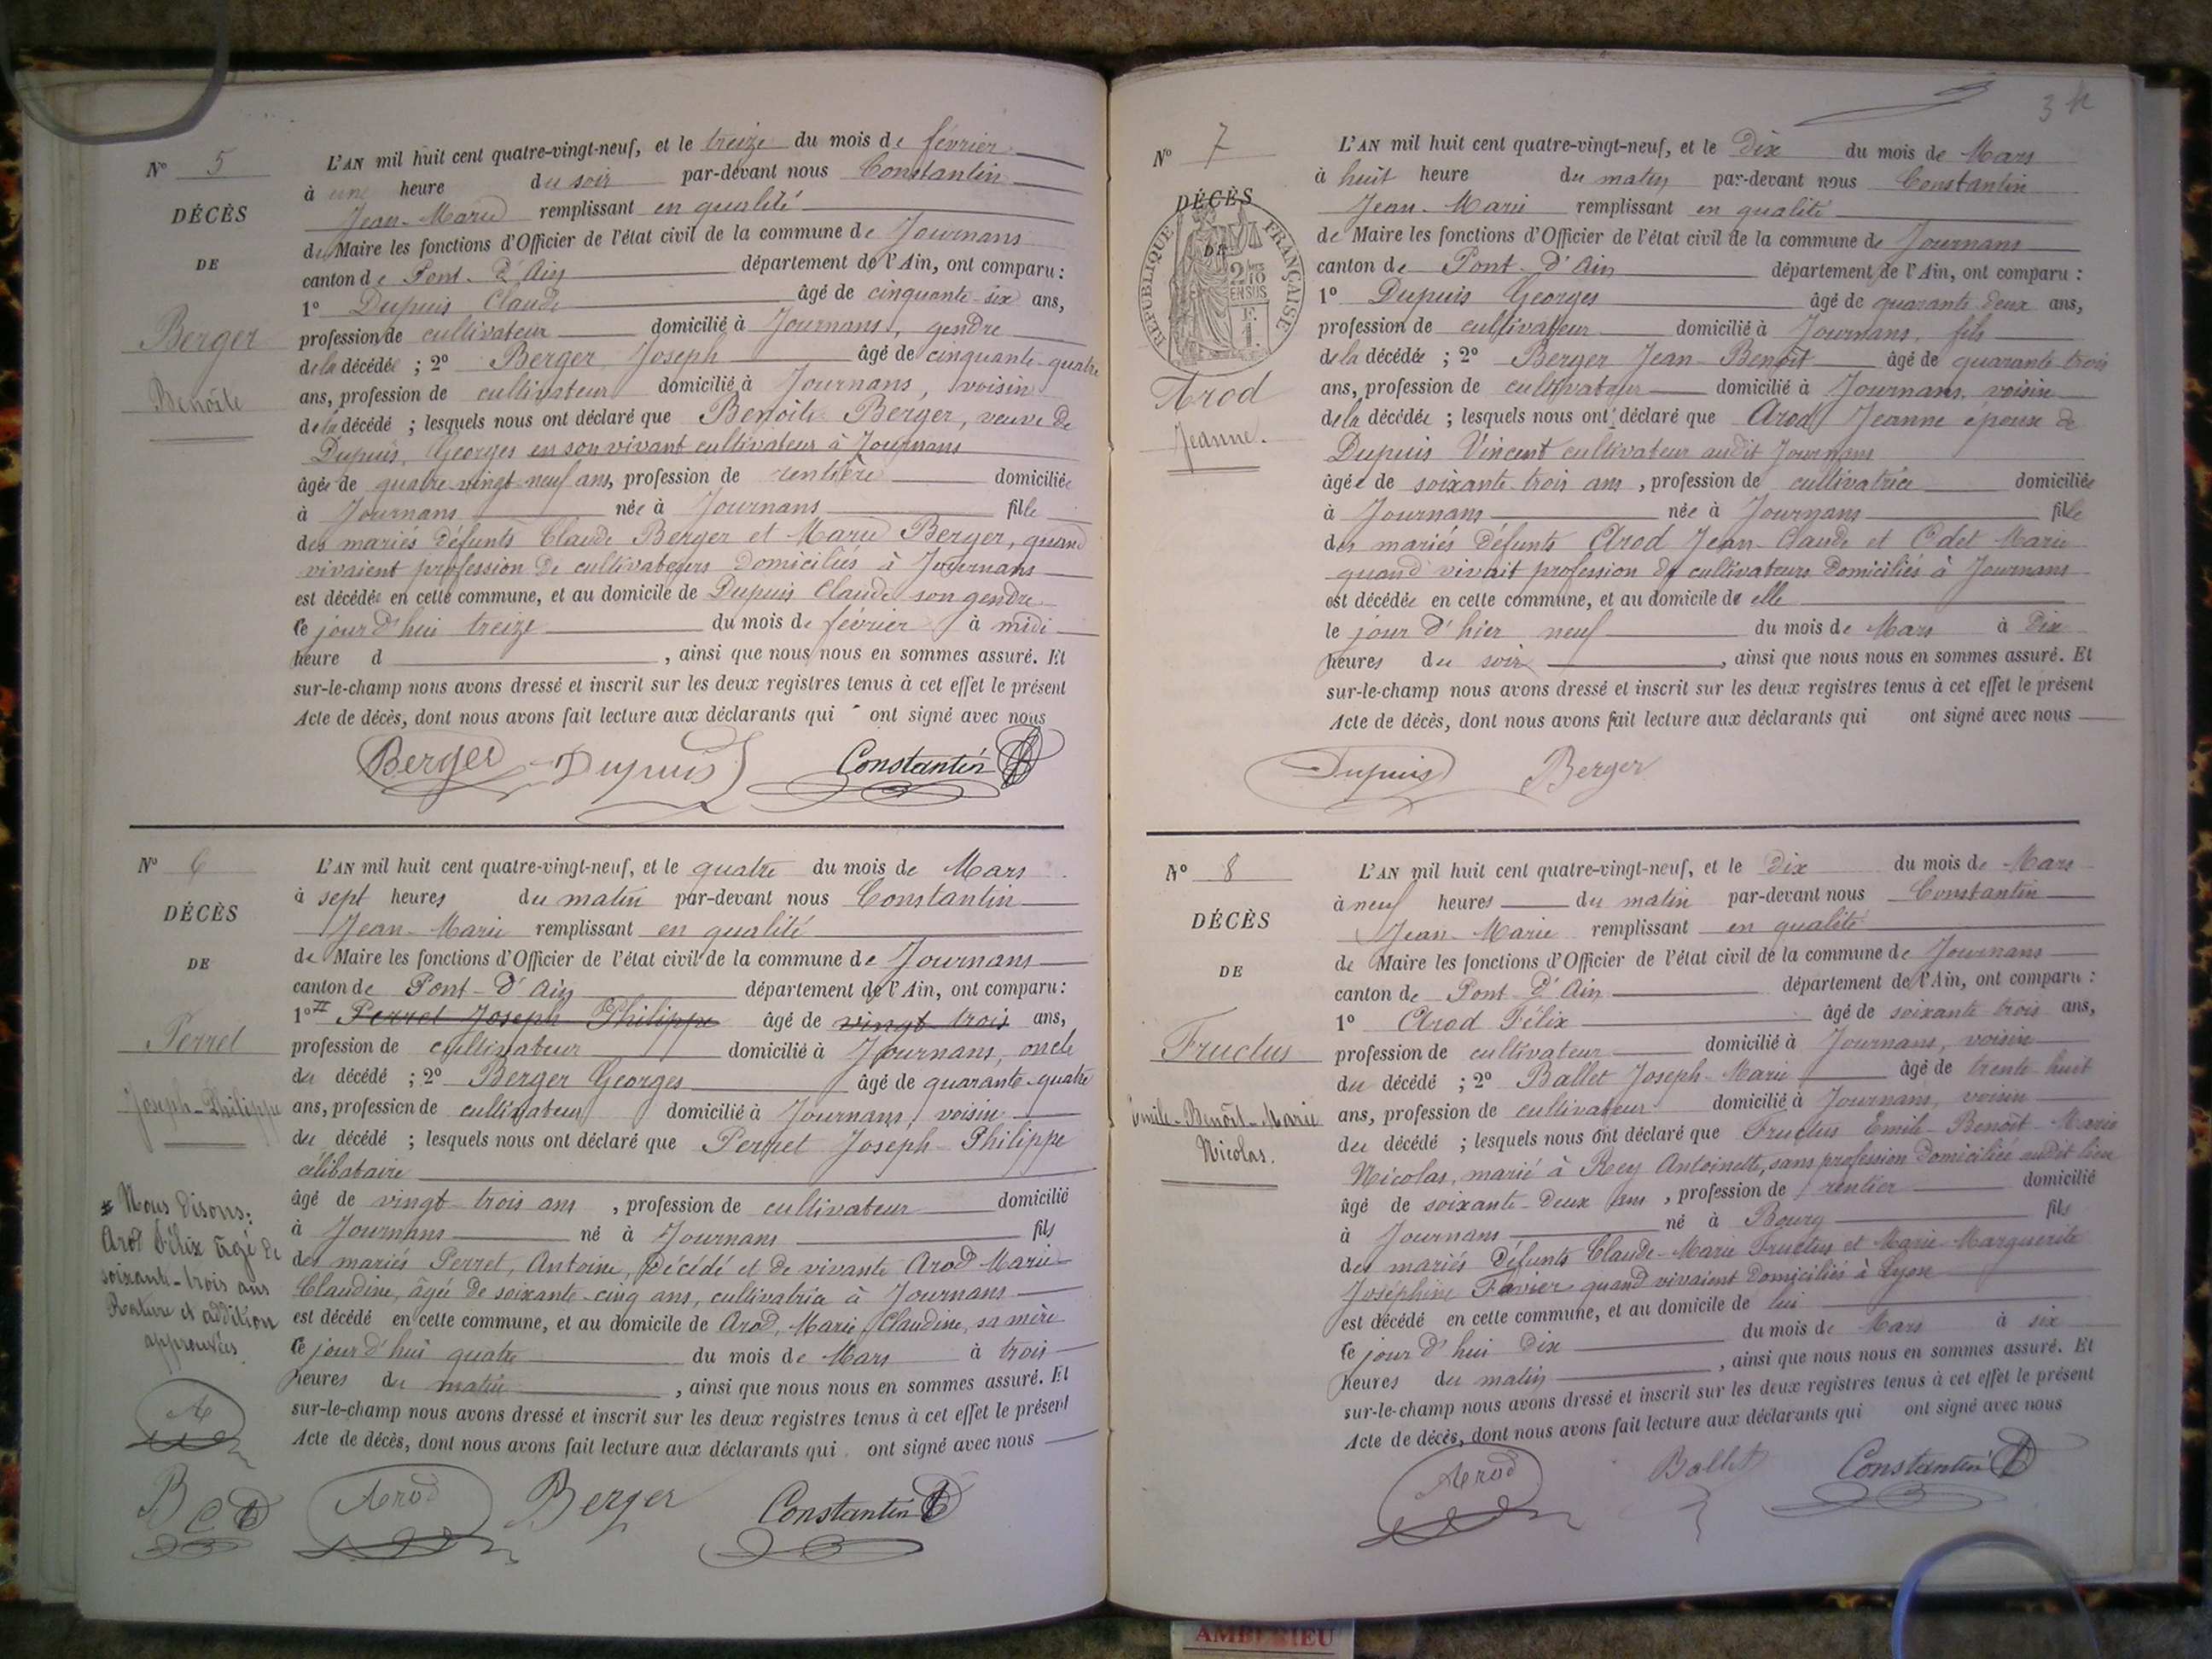 N° 5
DÉCÈS
DE
Berger
Benoîte
L'AN mil huit cent quatre-vingt-neuf, et le treize du mois de février
à une heure du soir par-devant nous Constantin
Jean-Marie remplissant en qualité
de Maire les fonctions d'Officier de l'état civil de la commune de Journans
canton de Pont-d'Ain département de l'Ain, ont comparu :
1° Dupuis Claude âgé de cinquante-six ans,
profession de cultivateur domicilié à Journans, gendre
de la décédée ; 2° Berger Joseph âgé de cinquante-quatre
ans, profession de cultivateur domicilié à Journans, voisin
de la décédé ; lesquels nous ont déclaré que Benoîte Berger, veuve de
Dupuis, Georges en son vivant cultivateur à Journans
âgée de quatre-vingt-neuf ans, profession de rentière domiciliée
à Journans née à Journans fille
des mariés défunts Claude Berger et Marie Berger, quand
vivaient profession de cultivateurs domiciliés à Journans
est décédée en cette commune, et au domicile de Dupuis Claude son gendre
le jour d'hui treize du mois de février à midi
heure d , ainsi que nous nous en sommes assuré. Et
sur-le-champ nous avons dressé et inscrit sur les deux registres tenus à cet effet le présent
Acte de décès, dont nous avons fait lecture aux déclarants qui ont signé avec nous
Berger Dupuis Constantin
N° 6
DÉCÈS
DE
Perret
Joseph-Philippe
L'AN mil huit cent quatre-vingt-neuf, et le quatre du mois de Mars
à sept heures du matin par-devant nous Constantin
Jean-Marie remplissant en qualité
de Maire les fonctions d'Officier de l'état civil de la commune de Journans
canton de Pont-d'Ain département de l'Ain, ont comparu :
1° # Perret Joseph Philippe âgé de vingt trois ans,
profession de cultivateur domicilié à Journans, oncle
du décédé ; 2° Berger Georges âgé de quarante-quatre
ans, profession de cultivateur domicilié à Journans, voisin
du décédé ; lesquels nous ont déclaré que Perret Joseph-Philippe
célibataire
âgé de vingt trois ans , profession de cultivateur domicilié
à Journans né à Journans fils
des mariés Perret, Antoine, décédé et de vivante Arod Marie-
Claudine, âgée de soixante-cinq ans, cultivatrice à Journans
est décédé en cette commune, et au domicile de Arod, Marie, Claudine, sa mère
le jour d'hui quatre du mois de Mars à trois
heures du matin , ainsi que nous nous en sommes assuré. Et
sur-le-champ nous avons dressé et inscrit sur les deux registres tenus à cet effet le présent
Acte de décès, dont nous avons fait lecture aux déclarants qui ont signé avec nous
# Nous disons:
Arod Félix âgé de
soixante-trois ans
Rature et addition
approuvées
A
B C
Arod Berger Constantin
3
N° 7
DÉCÈS
DE
RÉPUBLIQUE FRANÇAISE
Arod
Jeanne.
L'AN mil huit cent quatre-vingt-neuf, et le dix du mois de Mars
à huit heure du matin par-devant nous Constantin
Jean-Marie remplissant en qualité
de Maire les fonctions d'Officier de l'état civil de la commune de Journans
canton de Pont-d'Ain département de l'Ain, ont comparu :
1° Dupuis Georges âgé de quarante deux ans,
profession de cultivateur domicilié à Journans, fils
de la décédée ; 2° Berger Jean-Benoît âgé de quarante trois
ans, profession de cultivateur domicilié à Journans, voisin
de la décédée ; lesquels nous ont déclaré que Arod Jeanne épouse de
Dupuis Vincent cultivateur audit Journans
âgée de soixante-trois ans , profession de cultivatrice domiciliée
à Journans née à Journans fille
des mariés défunts Arod Jean-Claude et Odet Marie
quand vivait profession de cultivateurs domiciliés à Journans
est décédée en cette commune, et au domicile de elle
le jour d'hier neuf du mois de Mars à dix
heures du soir , ainsi que nous nous en sommes assuré. Et
sur-le-champ nous avons dressé et inscrit sur les deux registres tenus à cet effet le présent
Acte de décès, dont nous avons fait lecture aux déclarants qui ont signé avec nous
Dupuis Berger
N° 8
DÉCÈS
DE
Fructus
Emile-Benoît-Marie
Nicolas.
L'AN mil huit cent quatre-vingt-neuf, et le dix du mois de Mars
à neuf heures du matin par-devant nous Constantin
Jean-Marie remplissant en qualité
de Maire les fonctions d'Officier de l'état civil de la commune de Journans
canton de Pont d'Ain département de l'Ain, ont comparu :
1° Arod Félix âgé de soixante trois ans,
profession de cultivateur domicilié à Journans, voisin
du décédé ; 2° Ballet Joseph-Marie âgé de trente huit
ans, profession de cultivateur domicilié à Journans, voisin
du décédé ; lesquels nous ont déclaré que Fructus Emile-Benoît-Marie
Nicolas, marié à Rey Antoinette, sans profession domiciliée audit lieu
âgé de soixante-deux ans , profession de rentier domicilié
à Journans né à Bourg fils
des mariés défunts Claude-Marie Fructus et Marie-Marguerite
Joséphine Favier quand vivaient domiciliés à Lyon
est décédé en cette commune, et au domicile de lui
le jour d'hui dix du mois de Mars à six
heures du matin , ainsi que nous nous en sommes assuré. Et
sur-le-champ nous avons dressé et inscrit sur les deux registres tenus à cet effet le présent
Acte de décès, dont nous avons fait lecture aux déclarants qui ont signé avec nous
Arod Ballet Constantin